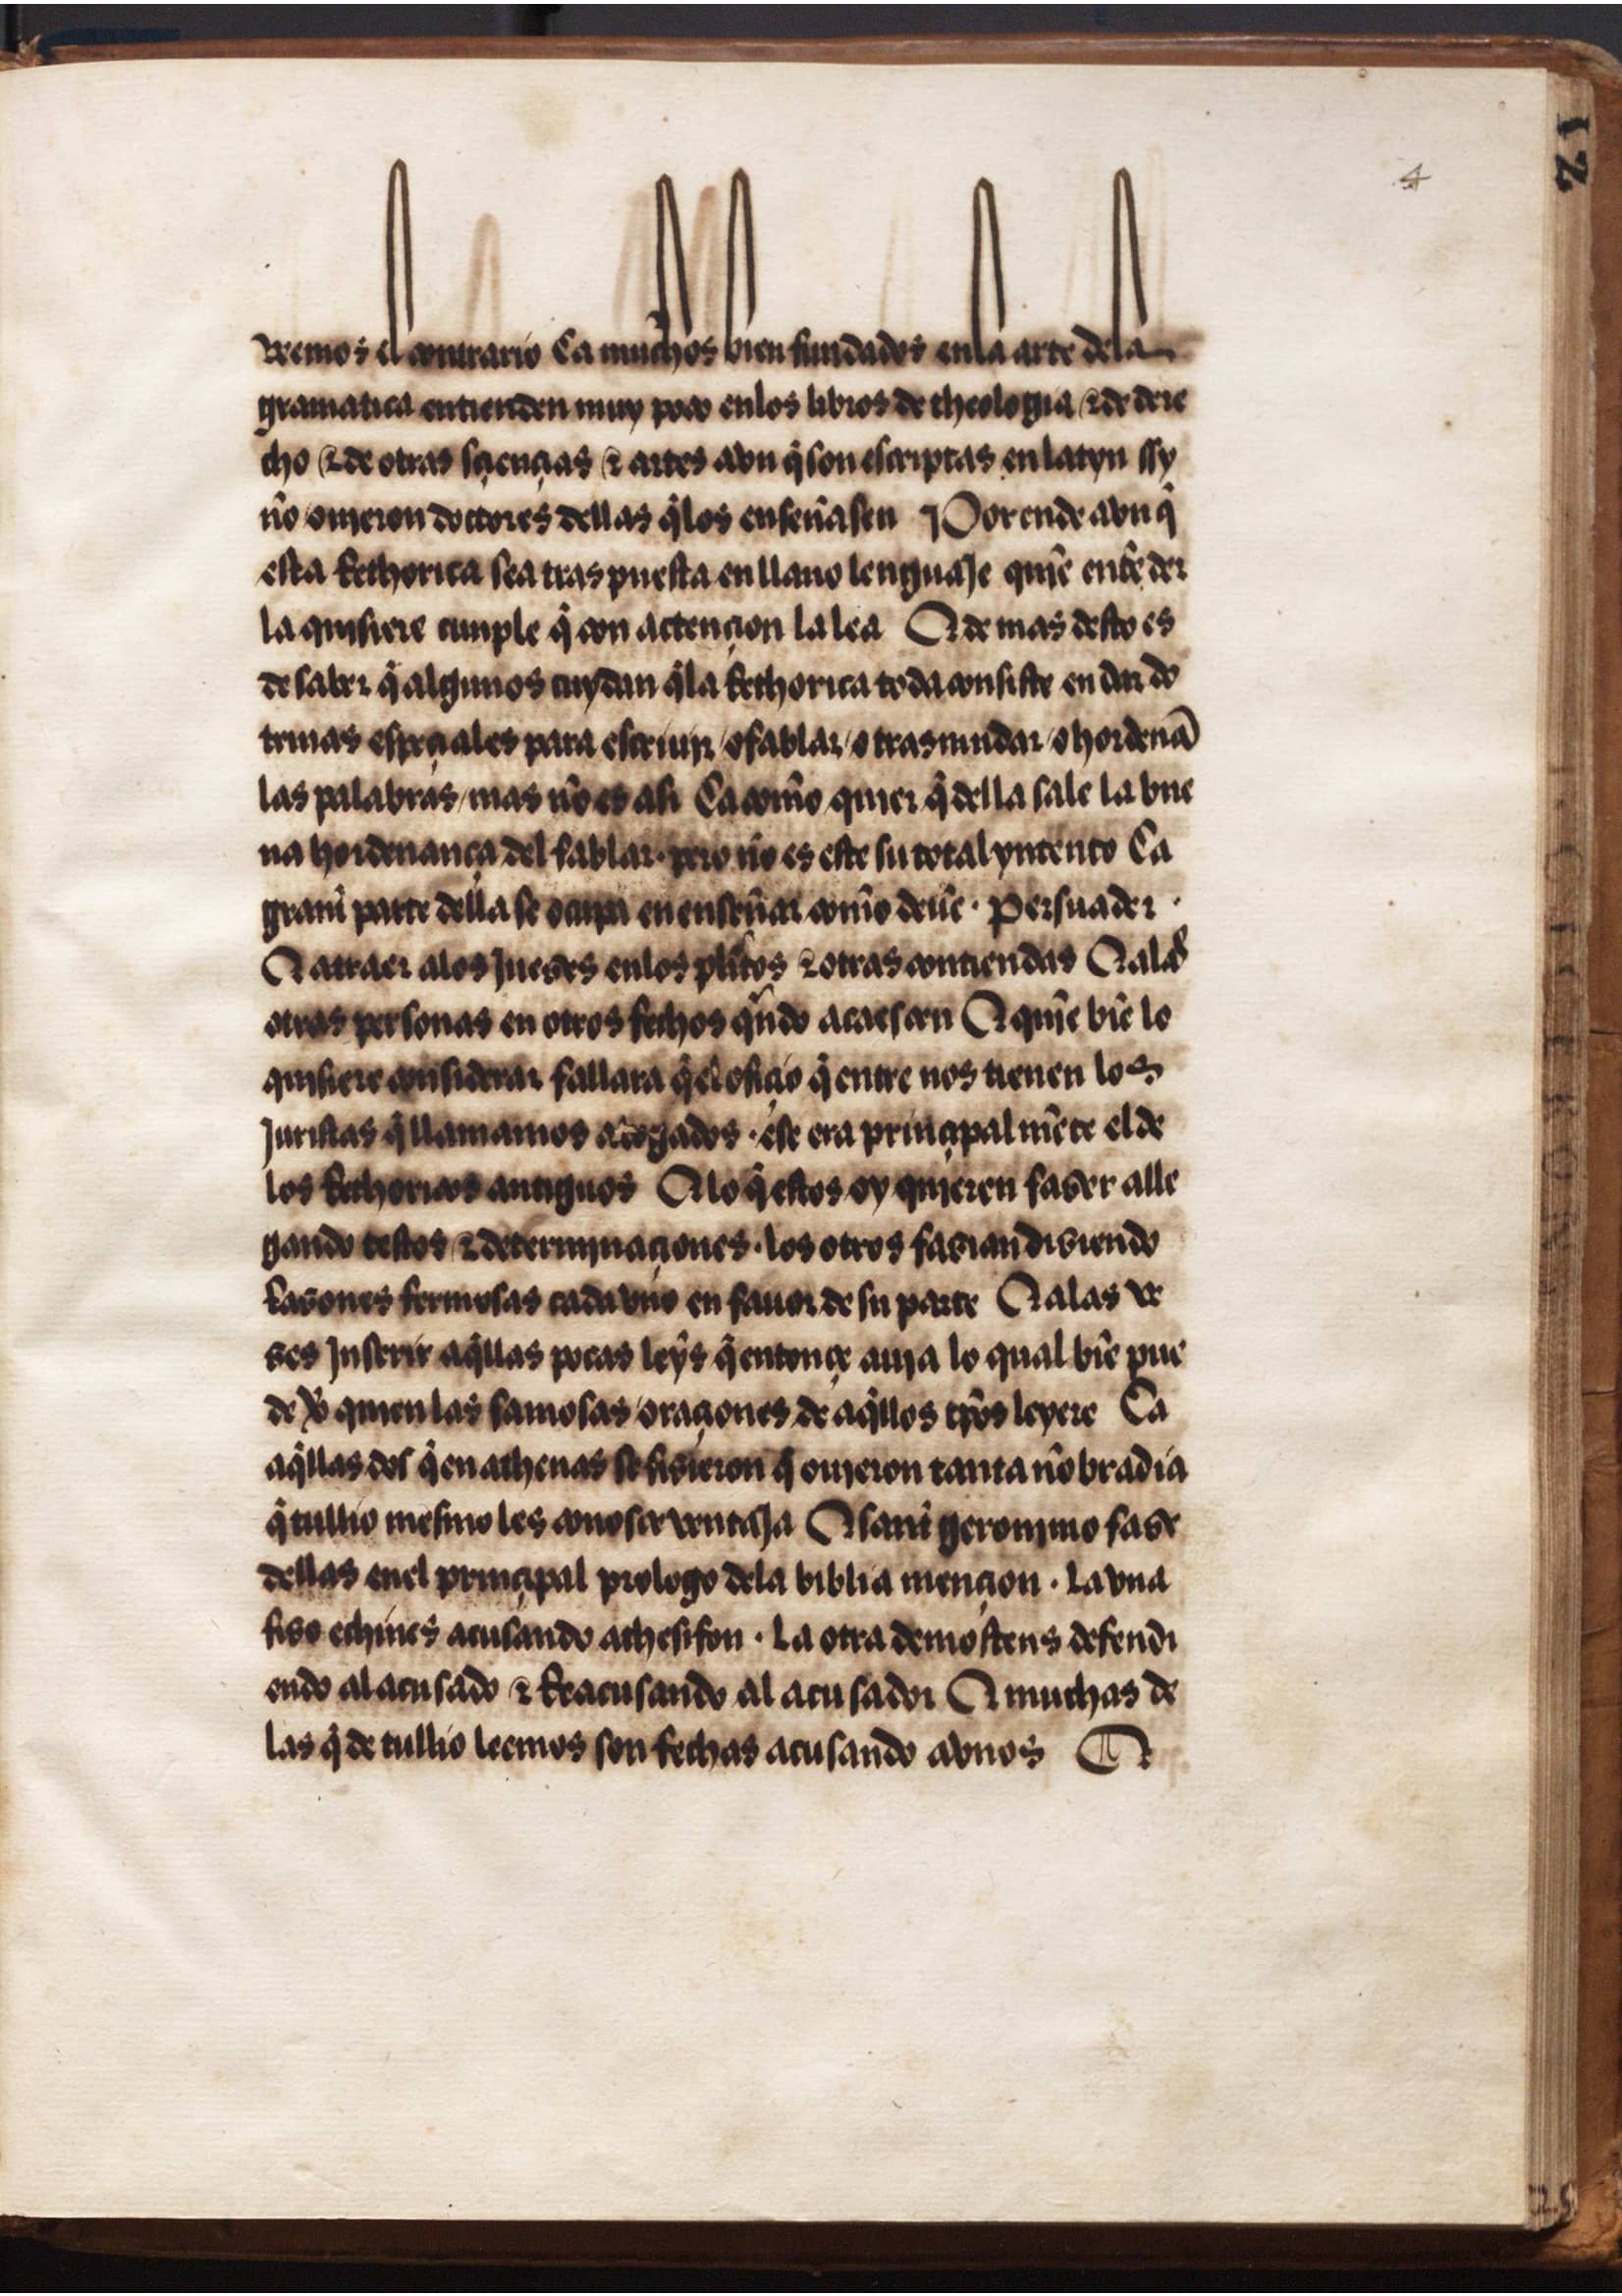 4
21
veemos el contrario Ca muchos bien fundados enla arte dela
gramatica entienden muy poco enlos libros de theologia & de dere
cho & de otras sçiençias & artes avn q̃ son escriptas en latyn ssy
nõ ovieron doctores dellas q̃ los enseñasen Por ende avn q̃
esta Rethorica sea traspuesta en llano lenguaje quiẽ entẽder
la quisiere cunple q̃ con actençion la lea A demas desto es
de saber q̃ algunos cuydan q̃ la Rethorica toda consiste en dar do
trinas espeçiales para escriuir / o fablar / o trasmudar / o hordenar
las palabras / mas nõ es asi Ca comõ quier q̃ della sale la bue
na hordenança del fablar · pero nõ es este su total yntento Ca
grant parte della se ocupa en enseñar comõ deuẽ · persuader ·
A atraer alos jueses enlos pl̃tos & otras contiendas A alas
otras personas en otros fechos qñdo acaesçen A quiẽ biẽ lo
quisiere considerar fallara q̃ el ofiçio q̃ entre nos tienen los
juristas q̃ llamamos abogados · ese era prinçipalmẽte el de
los Rethoricos antiguos A lo q̃ estos oy quieren faser alle
gando testos & determinaçiones · los otros fasian disiendo
Rasones fermosas cada vno en fauor de su parte A alas ve
ses inserir aq̃llas pocas leyẽs q̃ entonçe auia lo qual biẽ pue
de ver quien las famosas oraçiones de aq̃llos tp̃os leyere Ca
aq̃llas dos q̃ en athenas se fisieron q̃ ovieron tanta nõbradia
q̃ tullio mesmo les conosce ventaja A sant geronimo fase
dellas enel prinçipal prologo dela biblia mençion · La vna
fiso echines acusando athesifon · La otra demostens defendi
endo al acusado & Reacusando al acusador A muchas de
las q̃ de tullio leemos son fechas acusando a vnos A